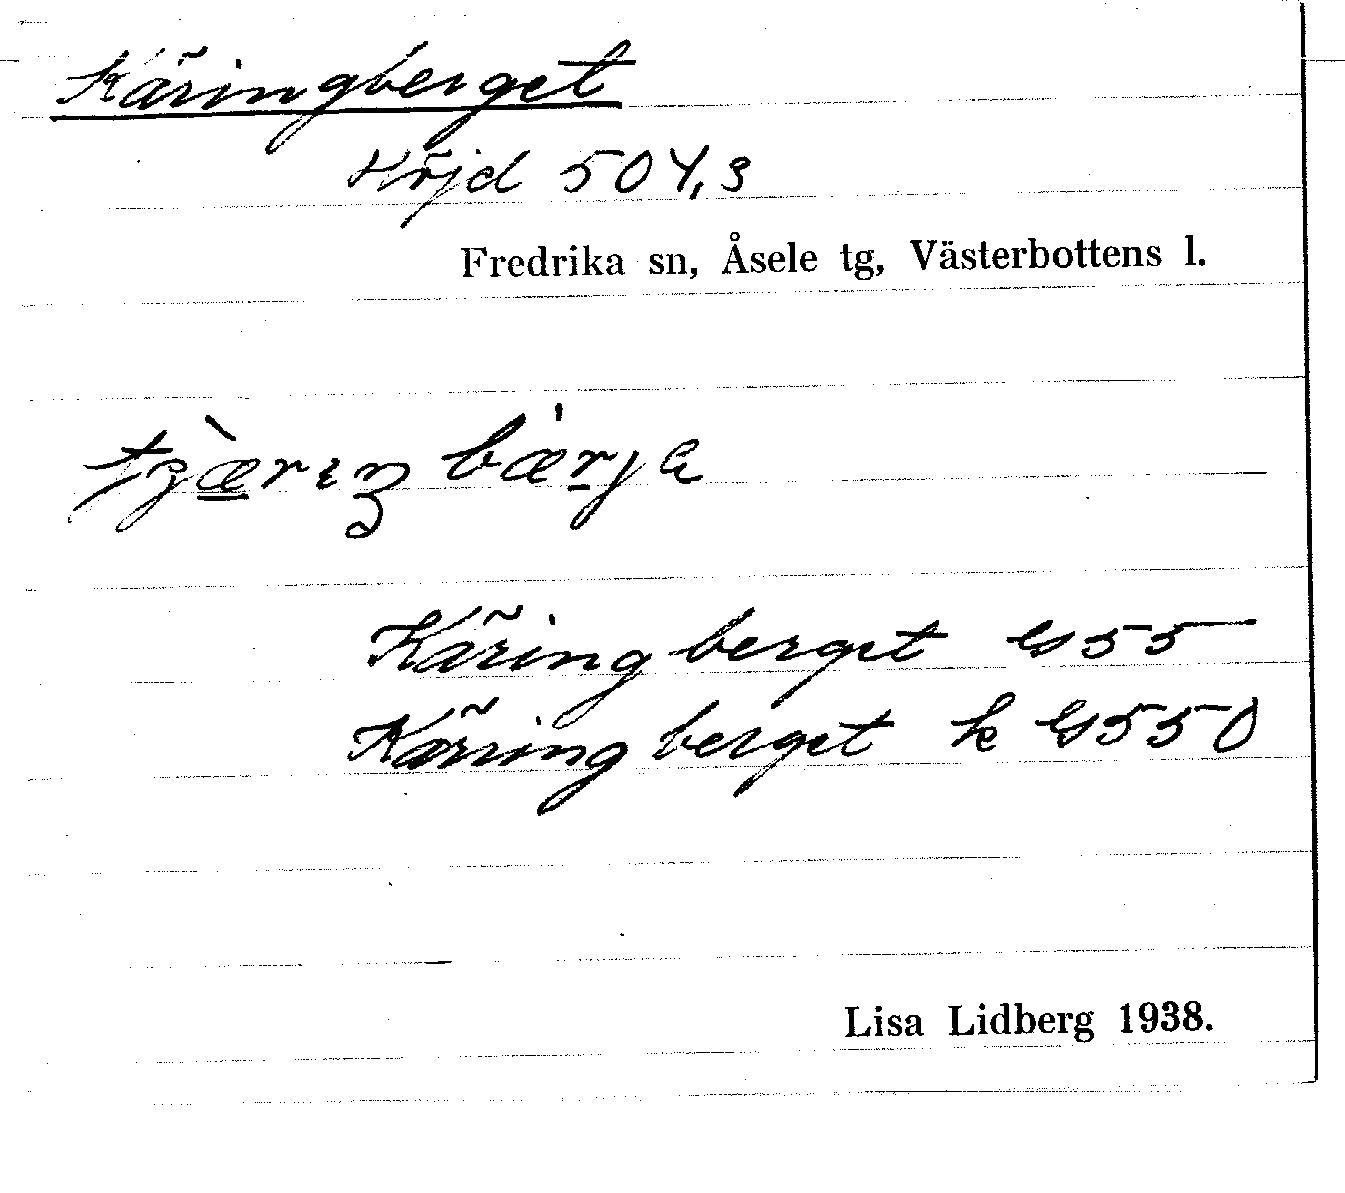 Käringberget
Höjd 504,3
Fredrika sn, Åsele tg, Västerbottens l.
Käringberget G55
Käringberget k G550
Lisa Lidberg 1938.